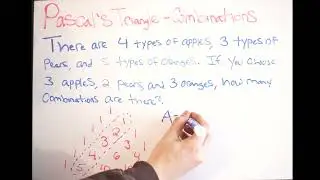 Pascal's Triangle - Combinations
There are 4 types of apples, 3 types of
Pears, and 5 types of oranges. If you choose
3 apples, 2 pears, and 3 oranges, how many
Combinations are there?
A=
1
1 1
1 2 1
1 3 3
1 4 6 4
1 5 10